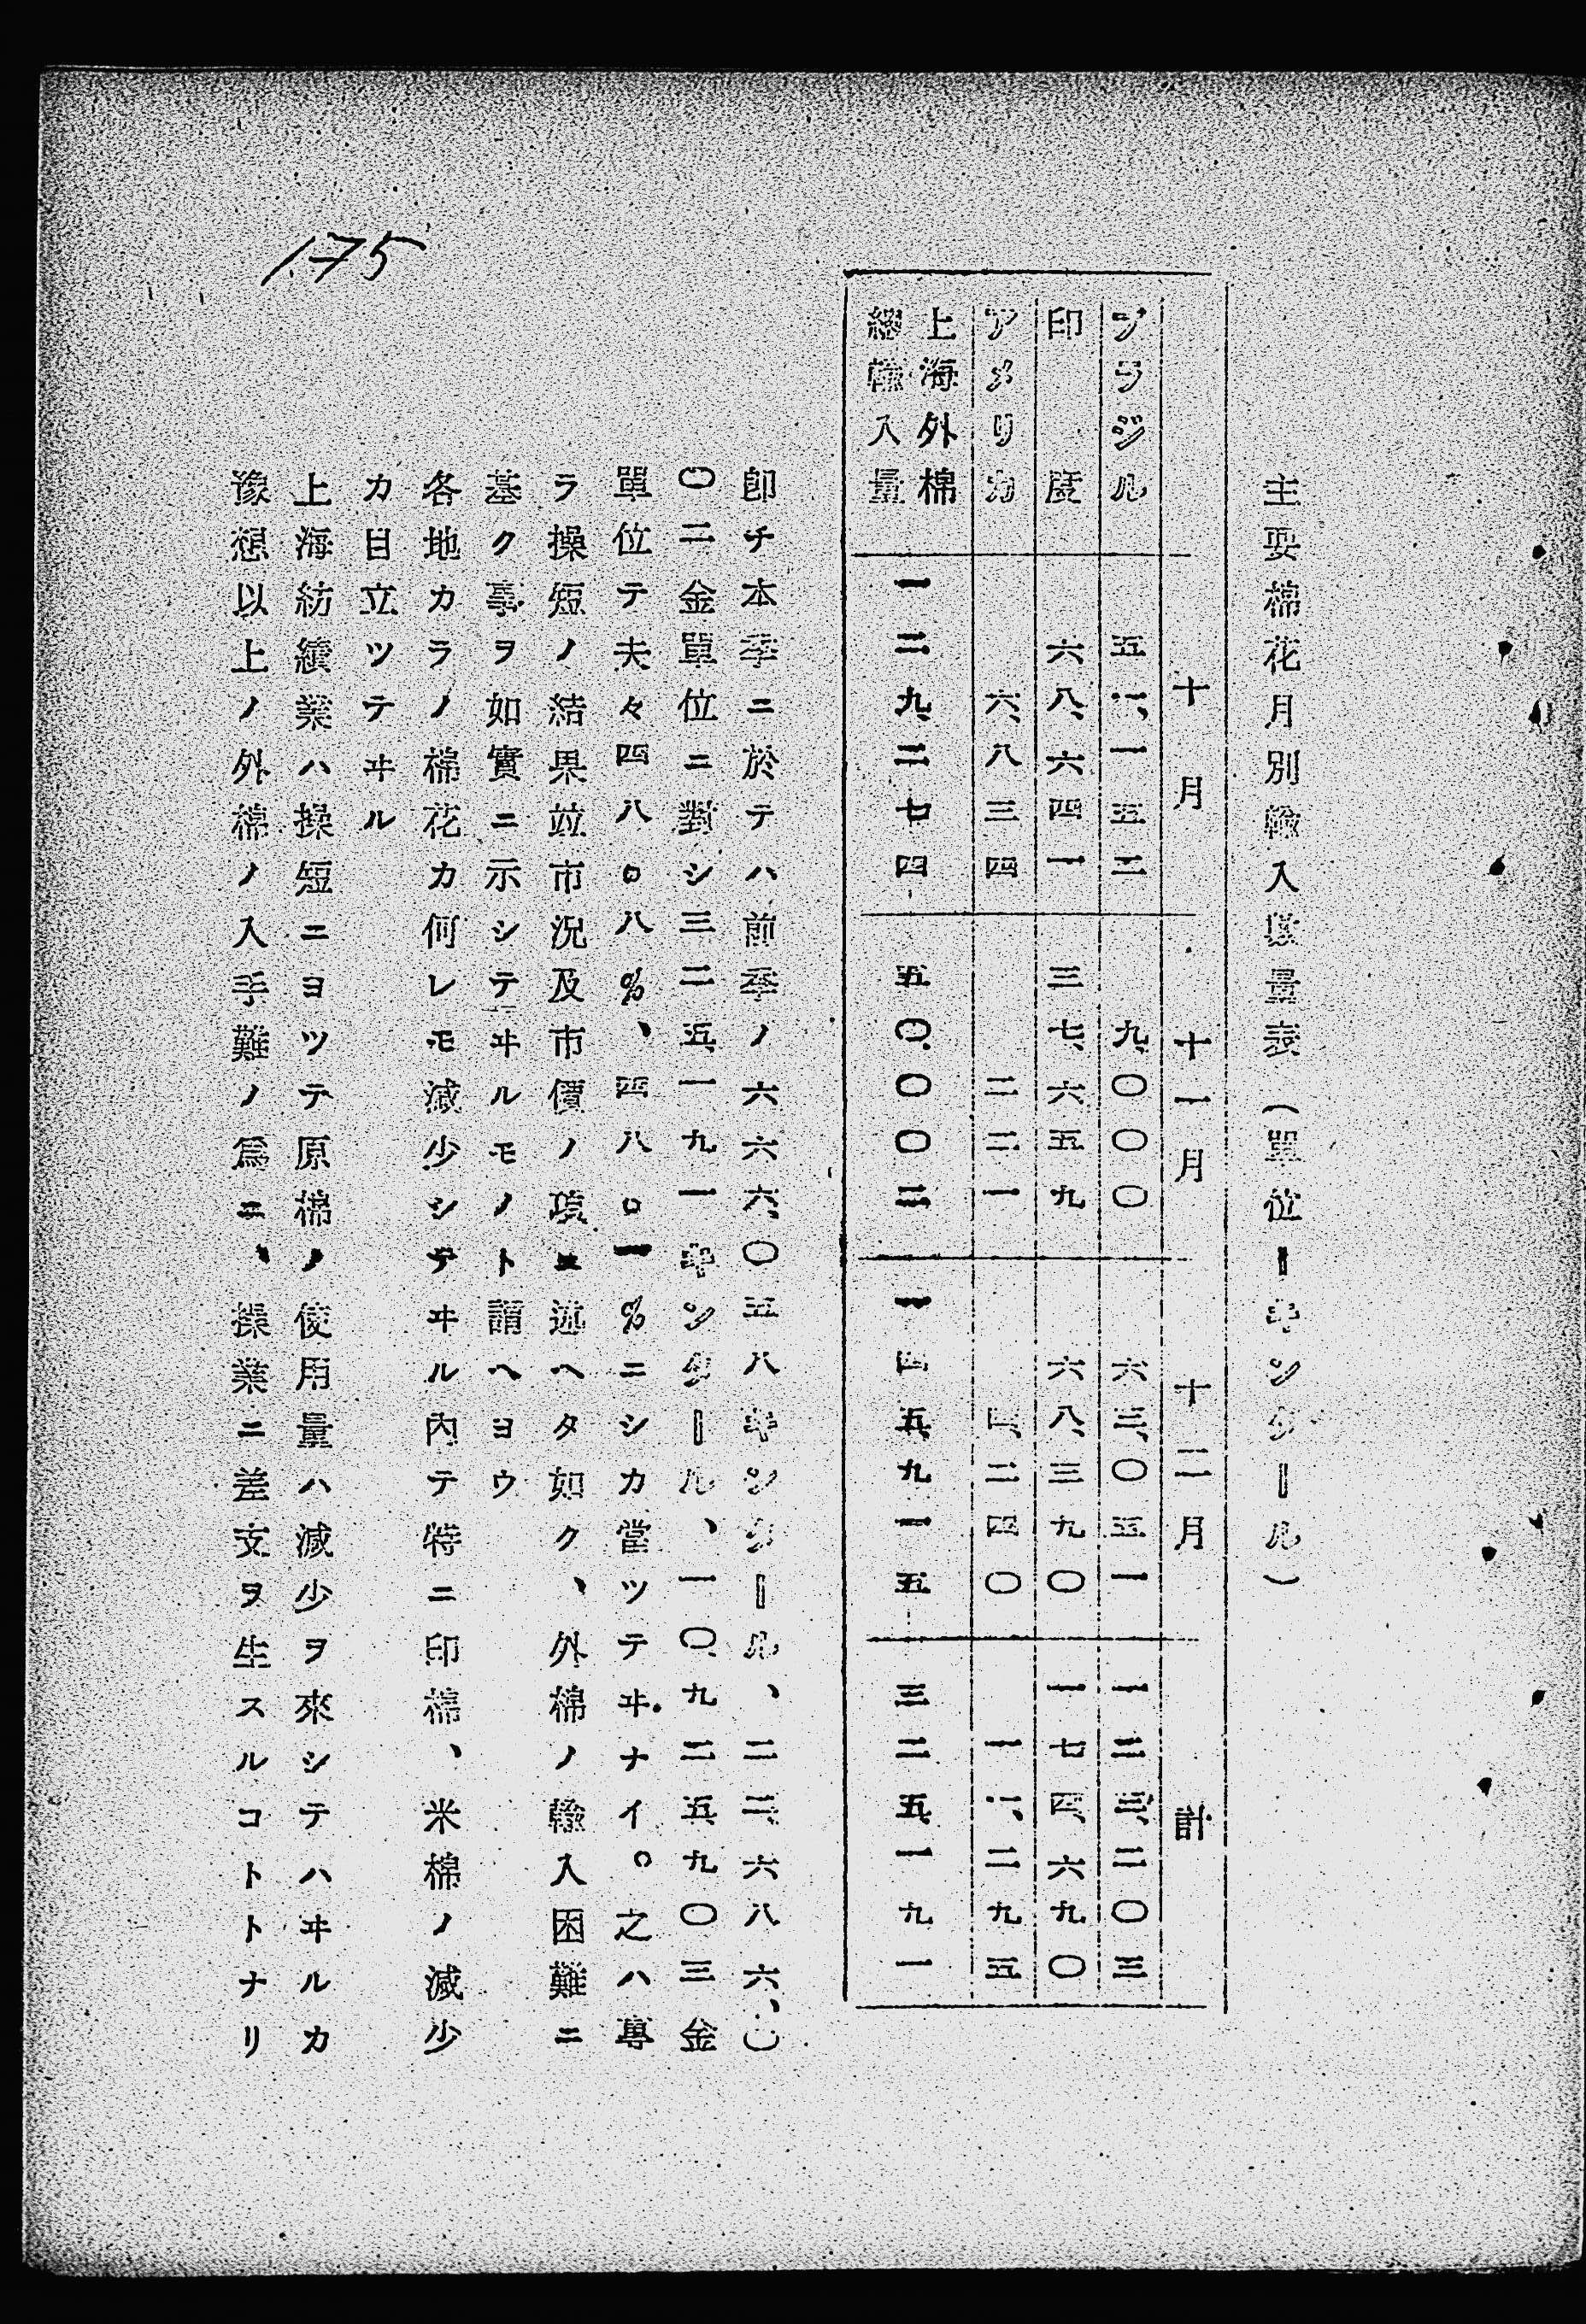 主要棉花月別輸入數量表(單位ーキンタール)
十月 十一月 十二月 計
ブラジル 五一、一五二 九、〇〇〇 六三、〇五一 一二三、二〇三
印度 六八、六四一 三七、六五九 六八、三九〇 一七四、六九〇
アメリカ 六、八三四 二二一 四、二四〇 一一、二九五
上海外棉
總輸入量 一二九、二七四 五〇、〇〇二 一四五、九一五 三二五、一九一
卽チ本季ニ於テハ前季ノ六六六、〇五八キンタール、二二、六八六、〇
〇二金單位ニ對シ三二五、一九一キンタール、一〇、九二五、九〇三金
單位テ夫々四八ロ八%、四八ロ一%ニシカ當ツテヰナイ。之ハ專
ラ操短ノ結果並市況及市價ノ項ニ述ヘタ如ク、外棉ノ輸入困難ニ
基ク事ヲ如實ニ示シテヰルモノト謂ヘヨウ
各地カラノ棉花カ何レモ減少シテヰル內テ特ニ印棉、米棉ノ減少
カ目立ツテヰル
上海紡績業ハ操短ニヨツテ原棉ノ使用量ハ減少ヲ來シテハヰルカ
豫想以上ノ外棉ノ入手難ノ爲ニ、操業ニ差支ヲ生スルコトトナリ
175